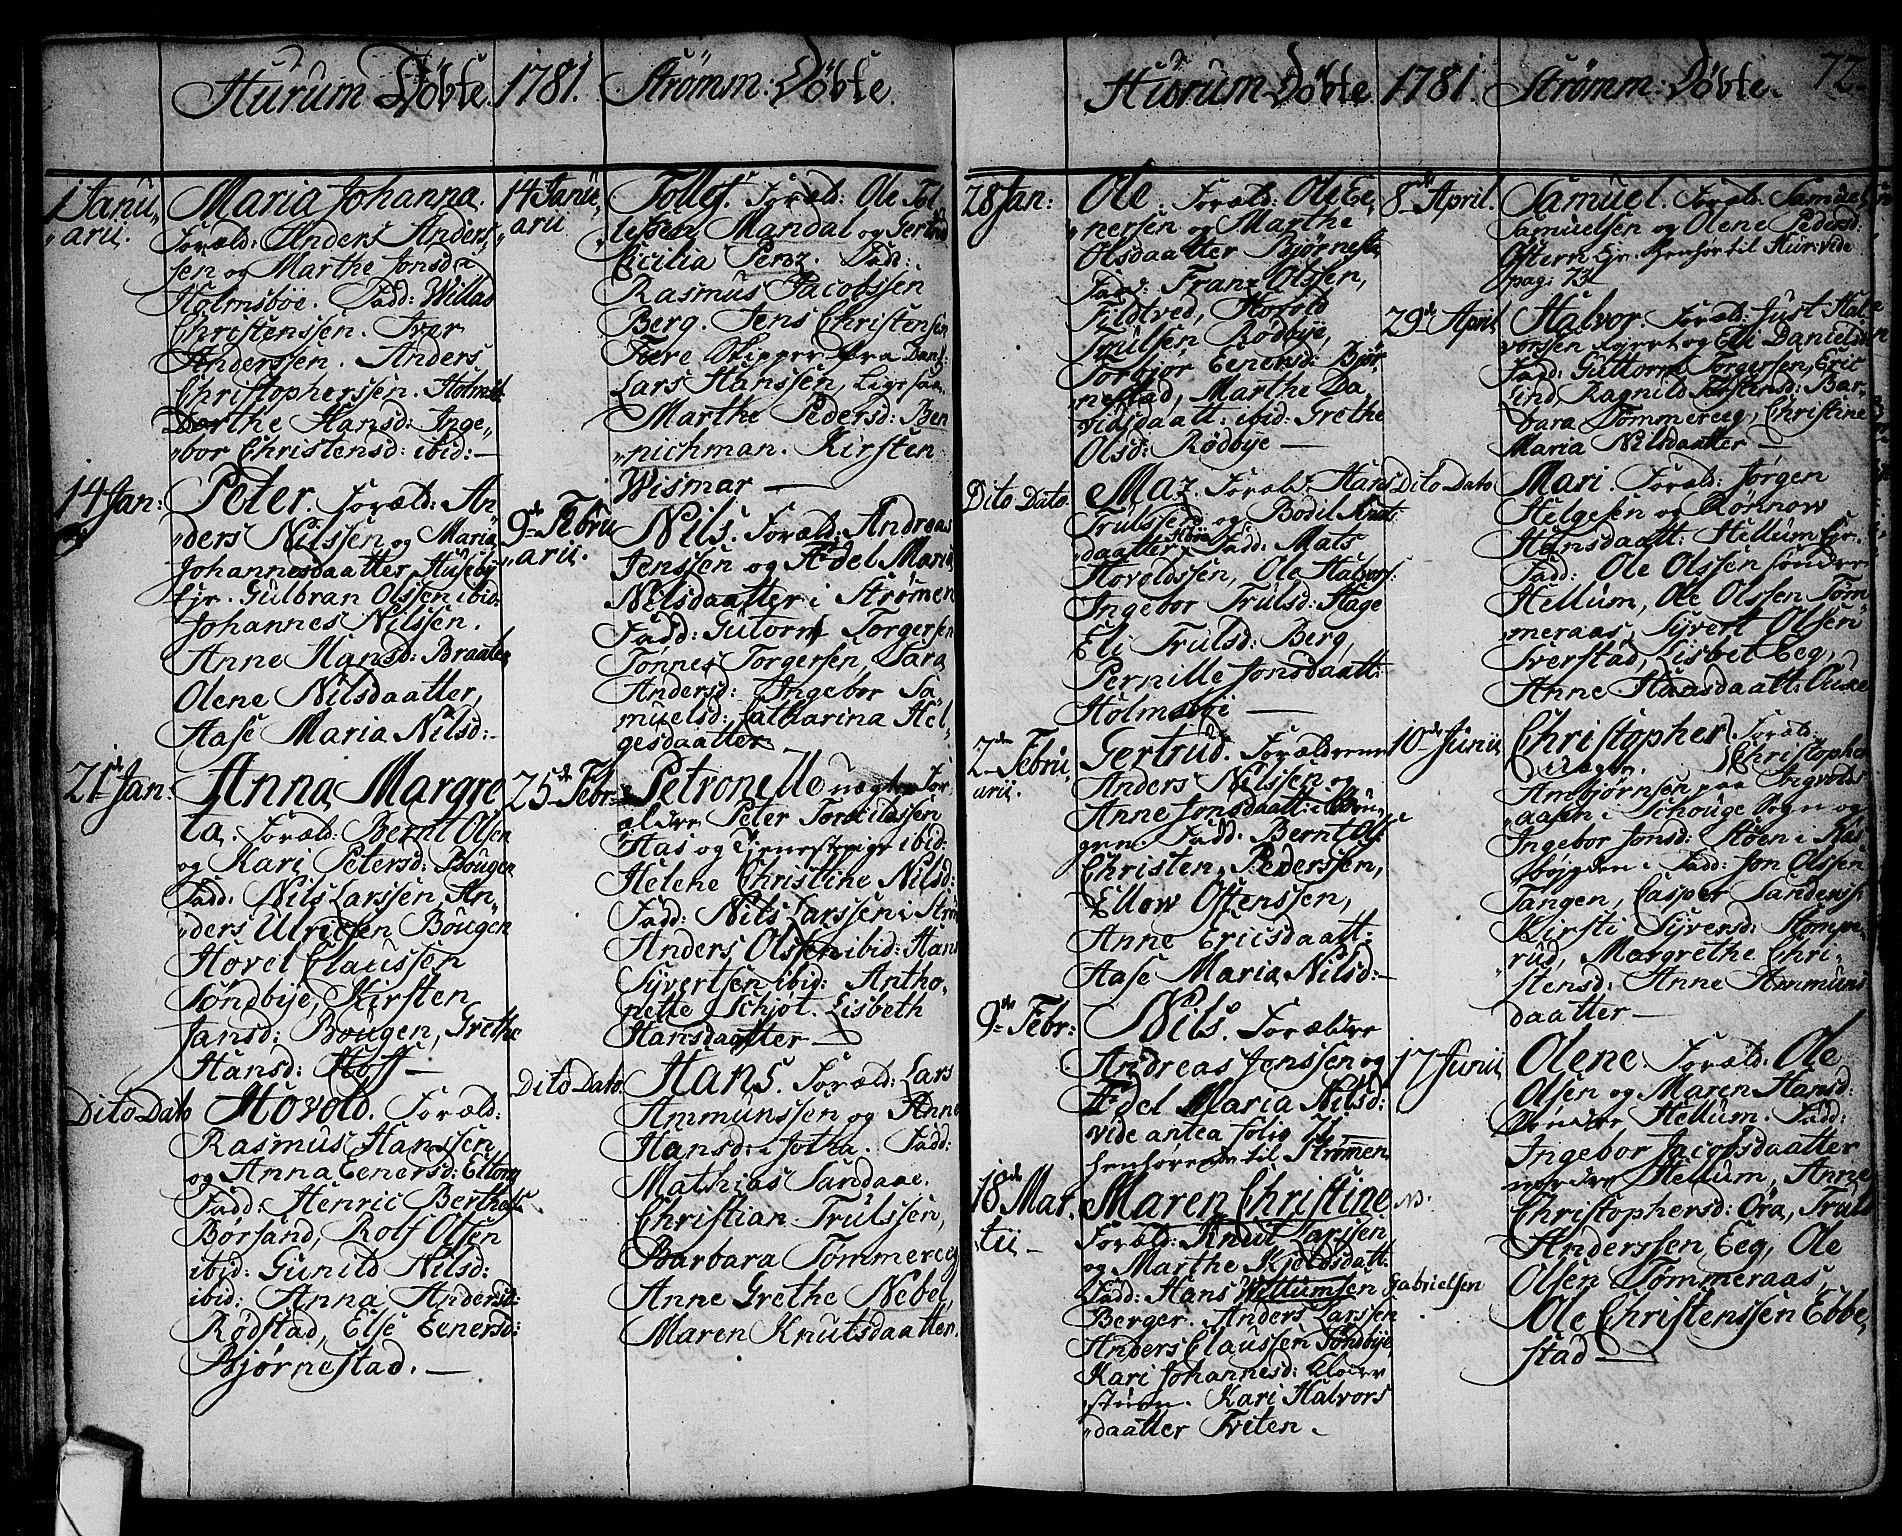 Hurum Døbte 1781. Strømm: Døbte.
1 Janu-
arii.
Maria Johanna.
Foræld: Anders Anders,
sen og Marthe Jonsd:
Holmsboe. Fadd: Willas
Christenssen. Iver
Anderssen. Anders
Christopherssen. Holmsb
Dorthe Hansd: Inge,
bor Christensd: ibid:
14 Jan:
Peter. Foræld: An,
ders Nilssen og Maria
Johannesdaatter Huseby
Ejr. Gulbran Olssen ibid:
Johannes Nilssen.
Anne Hansd: Braaten
Olene Nilsdaatter,
Aase Maria Nilsd:
21de Jan:
Anna Margre
ta. Foræld: Bernt Olsen
og Kari Petersd: Bougen
Fadd: Nils Larssen An,
ders Ulricsen Bougen
Hovel Claussen
Søndbye, Kirsten
Jansd: Bougen, Grethe
Hansd: Hoff
Dito Dato
Hovold. Foræld:
Rasmus Hanssen
og Anna Eenersd:
Fadd: Henric Berthels
Børsand, Rolf Olsen
ibid: Gunild Nilsd:
ibid: Anna Andersd:
Rødstad, Else Eenersd:
Bjørnestad.
14 Janu,
arii
Tollof. Foræld: Ole Tol
lefssen Mandal og Gertrud
Cicilia Perz. Fadd:
Rasmus Jacobssen
Berg. Jens Christensen
Fære Skipper fra Danf:
Lars Hanssen, Ligesaa
Marthe Pedersd: Ben
nichman. Kirsten
Wismar
9de Febru
arii.
Nils. Foræld: Andreas
Jenssen og Adel Maria
Nilsdaatter i Strømen
Fadd: Gutorm Torgersen
Tønnes Torgersen, Sara
Andersd: Ingebor Sa
muelsd: Catharina Hel,
gesdaatter
25de Febr:
Petronelle uægte For,
ældre Peter
Aas og tjenestepige ibid:
Helene Christine Nilsd:
Fadd: Nils Larssen i Strøm
Anders Olssen ibid: Hans
Syvertsen ibid: Antho,
nette Schjøt. Lisbeth
Hansdaatter
Dito Dato.
Hans. Foræld: Lars
Ammunssen og Anne
Hansd: i Tofta. Fadd:
Mathias Sandaae.
Christian Trulssen,
Barbara Tommereeg
Anne Grethe Nebel,
Maren Knutsdaatter.
Hurum Døbte 1781. Strømm: Døbte. 72.
28 Jan:
Ole. Foræld: Ole Ee,
nersen og Marthe
Olsdaatter Bjørnest:
Fadd: Franz Olssen,
Fildtved, Hovold
Poulsen Rødbye,
Torbjør Eenersd: Bjør,
nestad, Marthe Da
vidsdaatt: ibid: Grethe
Olsd: Rødbye
Dito Dato.
Maz. Foræld: Hans
Trulssen og Bodil Knuts
daatter Fadd: Mats
Hovoldssen, Ole Halvors:
Ingebor Trulsd: Hage
Eli Trulsd: Berg,
Pernille Jonsdaatt:
Holmsboe
2den Febru,
arii.
Gertrud. Forældrene
Anders Nilssen og
Anne Jonsdaatt: Bou
gen. Fadd: Bernt Ols
Christen Pederssen,
Ellow Ostenssen,
Anne Ericsdaatt:
Aase Maria Nilsd:
9de Febr:
Nils. Forældre
Andreas Jenssen og
Adel Maria Nilsd:
vide antea folio 71
henhørende til Strømen
18de Mar,
tii
Maren Christine NB.
Foræld: Knut Larssen
og Marthe Kjeldsdatt:
Fadd: Hans Willumsen Gabrielsen
Berger. Anders Larssen
Anders Claussen Søndbye,
Kari Johannesd: Kloker
stuen. Kari Halvors
daatter Tveten.
8de April.
Samuel. Foræld: Samuel
Samuelssen og Olene Pedersd:
Østern Ejr. henhør til Hur: vide
pag: 73.
29de April
Halvor. Foræld: Just Hal
vorsen Kjøret og Eli Danielsd:
Fadd: Guttorm Torgersen, Eric
Lind Ragnild Torstensd: Bar,
bara Tommereeg, Christine
Maria Nilsdaatter
Dito Dato
Mari. Foræld: Jørgen
Helgesen og Rønnow
Hansdaatt: Hellum Ejr.
Fadd: Ole Olssen søndre
Hellum, Ole Olssen Tøm
meraas, Syvert Olssen
Sverstad, Lisbet Eeg,
Anne Haasdaatt:
10de Junii
Christopher. Foræld:
Christopher
Ambjørnsen paa Ingvolds
aasen i Schouge Sogn og
Ingebor Jonsd: Støen i Aas
bøjgden i Fadd: Jon Olssen
Tangen, Casper Sanderss:
Kirsti Syversd: Stompe
rud, Margrethe Chri,
stensd: Anne Ammuns
daatter
17 Junii
Olene. Foræld: Ole
Olsen og Maren Hansd:
Søndre Hellum. Fadd:
Ingebor Jacobsdaatter
nordre Hellum, Anne
Christophersd: Øra, Truls
Anderssen Eeg, Ole
Olsen Tømmeraas,
Ole Christenssen Ebbe,
stad